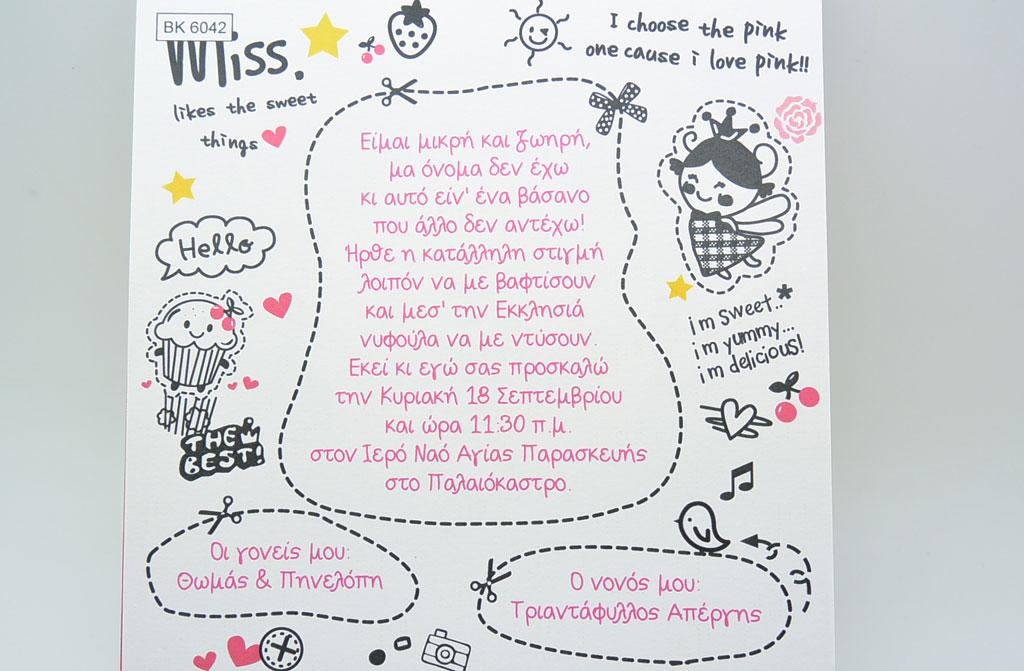 BK 6042
Miss.
likes the sweet
things
I choose the pink
one cause i love pink!!
Είμαι μικρή και ζωηρή,
μα όνομα δεν έχω
κι αυτό είν' ένα βάσανο
που άλλο δεν αντέχω!
Ήρθε η κατάλληλη στιγμή
λοιπόν να με βαφτίσουν
και μεσ' την Εκκλησιά
νυφούλα να με ντύσουν.
Εκεί κι εγώ σας προσκαλώ
την Κυριακή 18 Σεπτεμβρίου
και ώρα 11:30 π.μ.
στον Ιερό Ναό Αγίας Παρασκευής
στο Παλαιόκαστρο.
Hello
THE
BEST!
i'm sweet..*
i'm yummy...
i'm delicious!
Οι γονείς μου:
Θωμάς & Πηνελόπη
Ο νονός μου:
Τριαντάφυλλος Απέργης